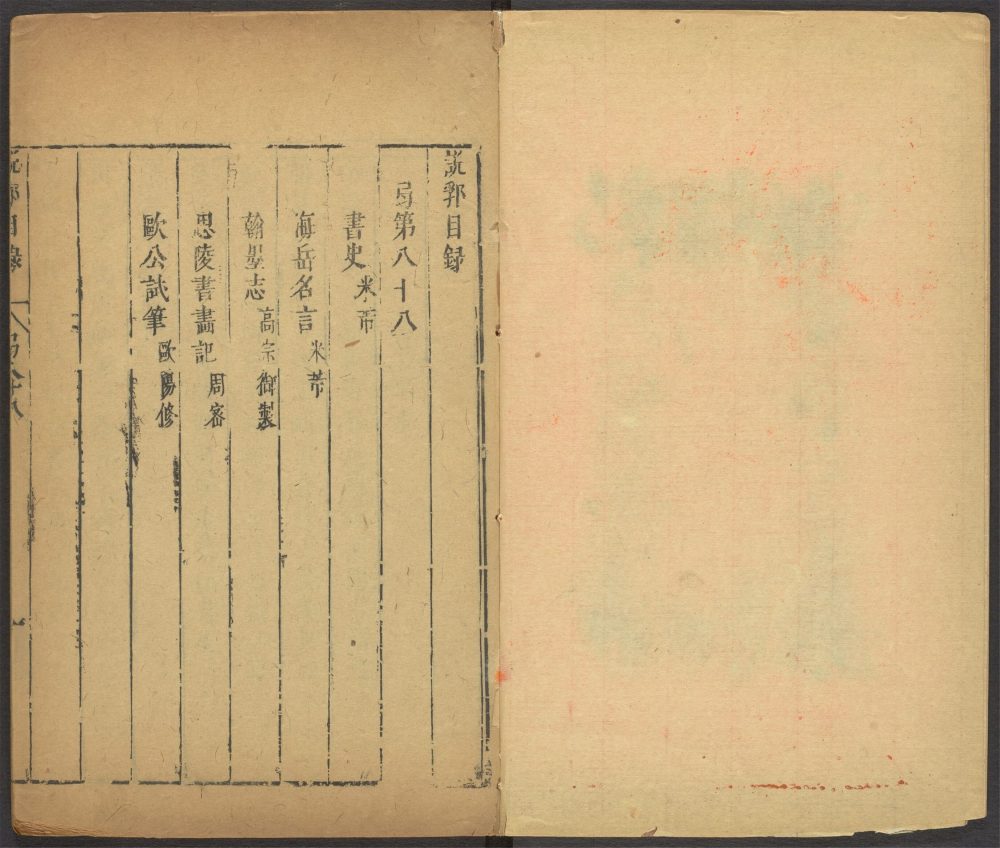 說郛目録
弓第八十八
書史 米芾
海岳名言 米芾
翰墨志 高宗御製
思陵書畫記 周密
歐公試筆 歐陽修
說郛目錄